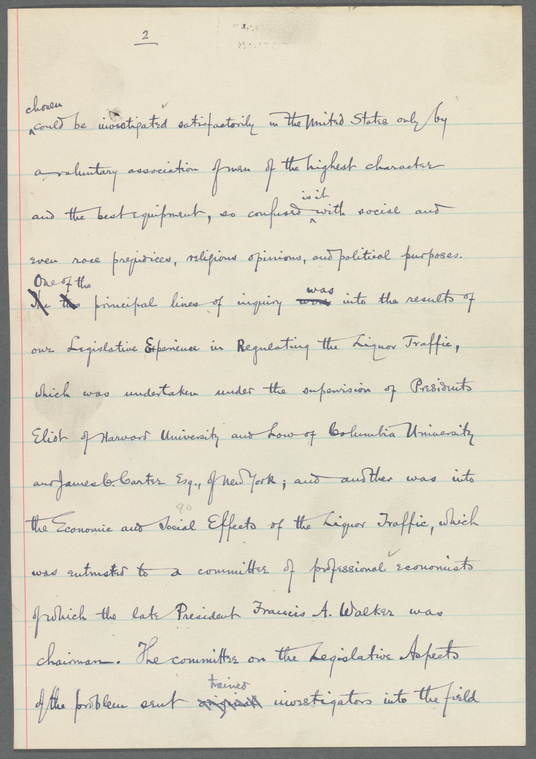 2
chosen
could be investigated satisfactorily in the United States only by
a voluntary association of men of the highest character
is it
and the best equipment, so confused with social and
even race prejudices, religious opinions, and political purposes.
One of the
The principal lines of inquiry was into the results of
our Legislative Experience in Regulating the Liquor Traffic,
which was undertaken under the supervision of Presidents
Eliot of Harvard University and Low of Columbia University
and James C. Carter Esq., of New York; and another was into
the Economic and Social Effects of the Liquor Traffic, which
was entrusted to a committee of professional economists
of which the late President Francis A. Walker was
chairman. The committee on the Legislative Aspects
trained
of the problem sent investigators into the field